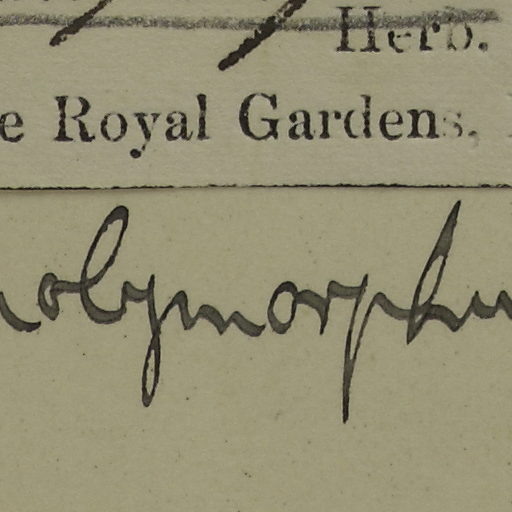 Herb.
e Royal Gardens,
olymorphu